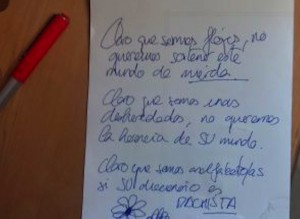 Claro que somos flojas, no
queremos sostener este
mundo de mierda.
Claro que somos unas
desheredadas, no queremos
la herencia de SU mundo.
Claro que somos analfabetas
si SU diccionario es
MACHISTA